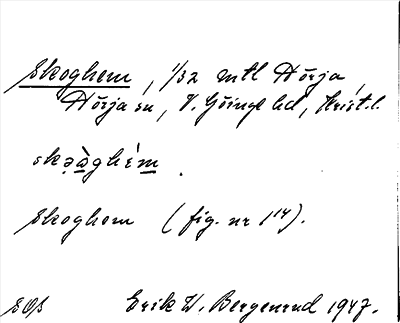 Skoghem, 1/32 mtl Hörja,
Hörja sn, V. Göinge hd, Krist.l.
skə̣ẁghém.
Skoghem (fig. nr 1¹⁴).
Erik W. Bergenrud 1947.